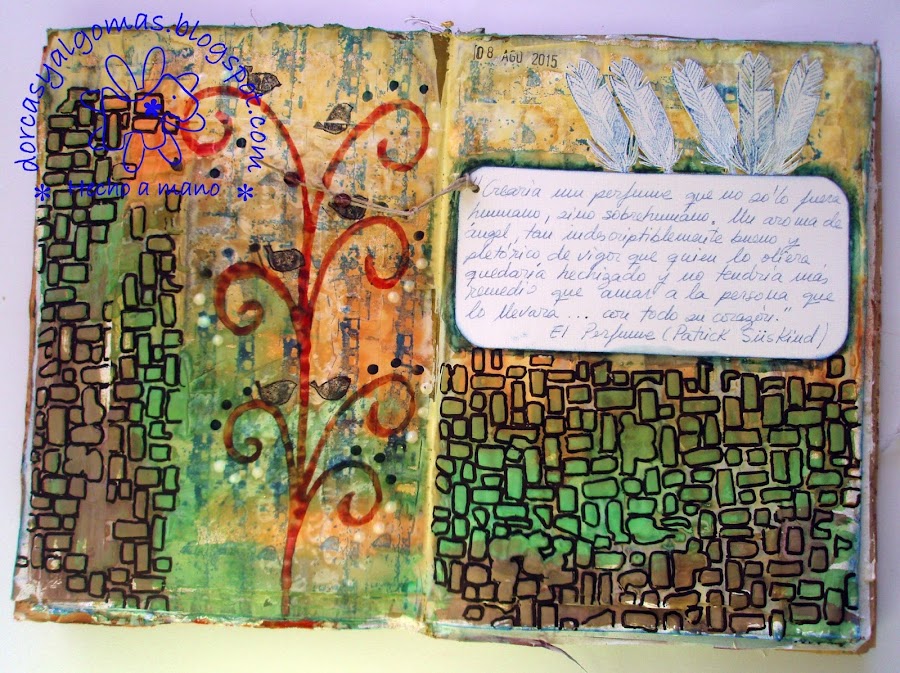 dorcasyalgomas.blogspot.com
* Hecho a mano *
08 AGO 2015
"Crearía un perfume que no sólo fuera
humano, sino sobrehumano. Un aroma de
ángel, tan indescriptiblemente bueno y
pletórico de vigor que quien lo oliera
quedaría hechizado y no tendría más
remedio que amar a la persona que
lo llevara ... con todo su corazón."
El Perfume (Patrick Süskind)